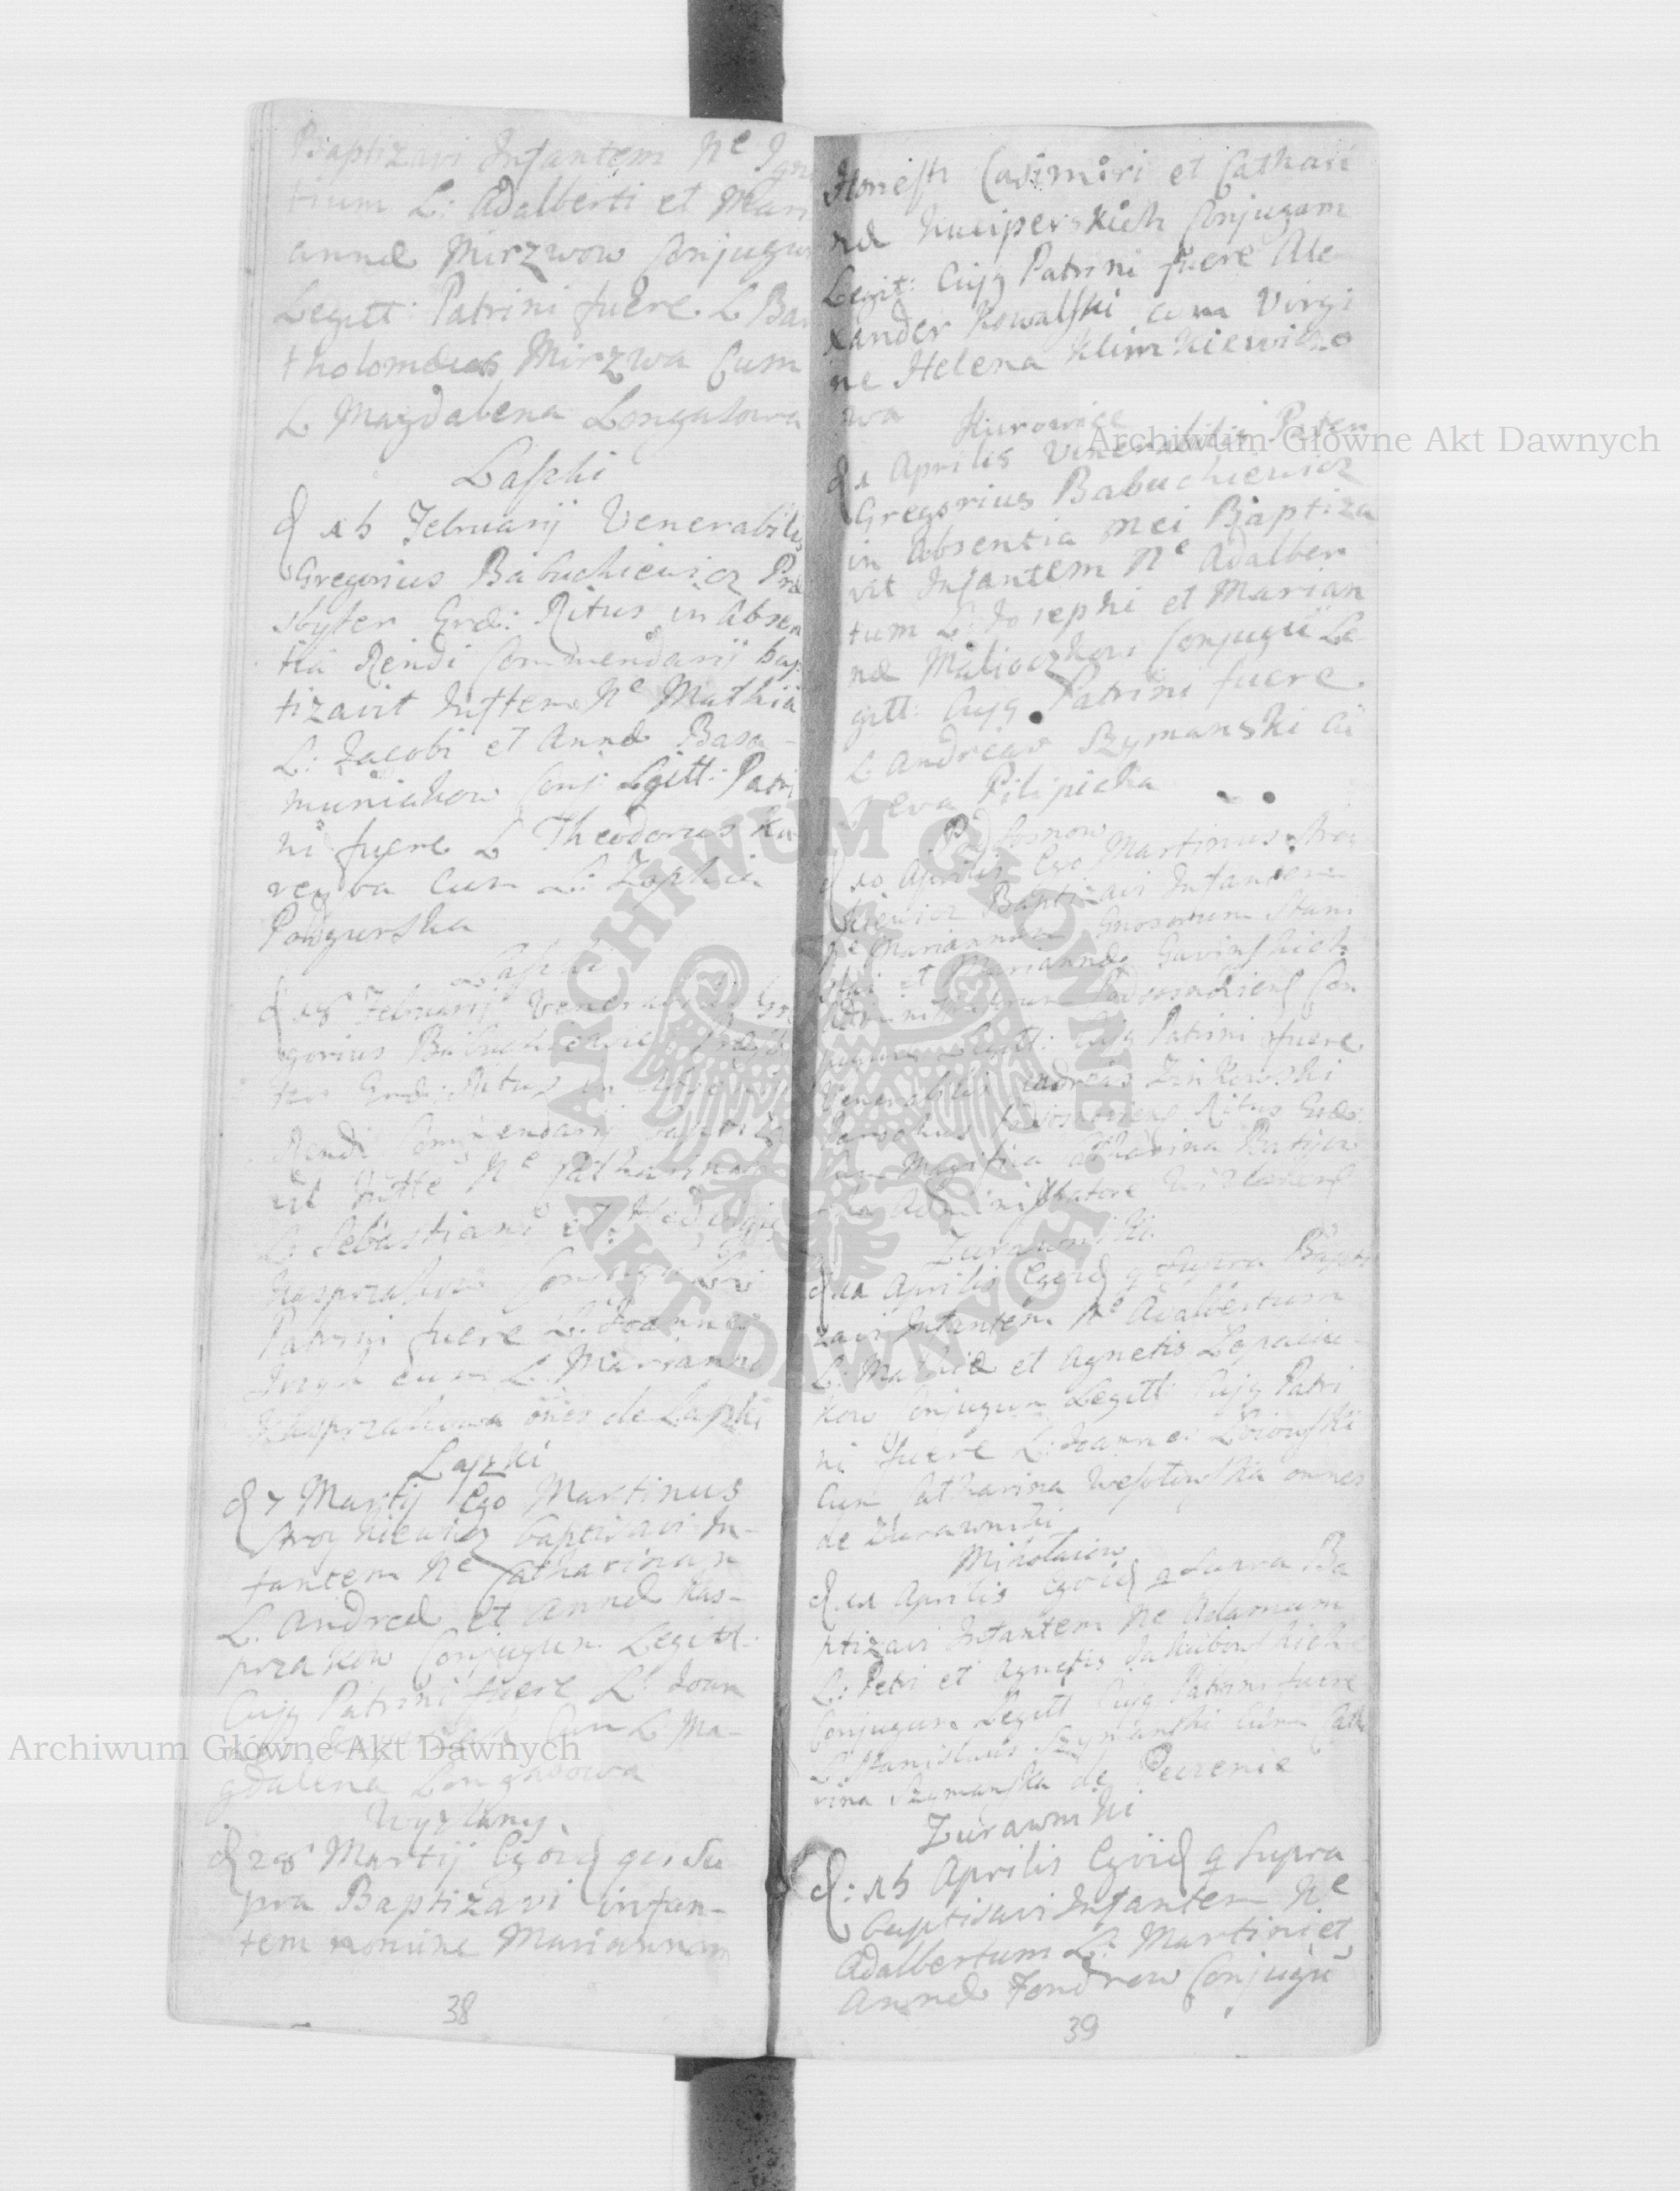 Baptizavi Infantem Ne Igna
tium L: Adalberti et Mari
annæ Mirzwow Conjugum
Legitt: Patrini fuere L Bar
tholomæus Mirzwa Cum
L Magdalena Longasowa
Laszki
d 15 Februarij Venerabilis
Gregorius Babuchiewicz Præ
sbyter Græ: Ritus in absen
tia Rendi Commendarij bap
tizavit Inftem Ne Mathiã
L: Jacobi et Annæ Basa-
muniakow Conj: Legitt: Patri
ni fuere L Theodorus
cum L: Zophia
Podgurska
Laszki
d 18 Februarij Venerabilis Gre
gorius Babuchiewicz Præsby
ter Græ: Ritus in Absentia
Rendi Commendarij baptiza
vit Inftẽ Ne Catharinam
L: Sebastiani et Hedvigis
Kasprzakow
Patrini fuere L: Joannes
cum L. Marianna
Kasprzakowa oñes de Laszki
Laszki
d 7 Martij Ego Martinus
Stroykiewicz baptisavi In-
fantem Ne Catharinam
L. Andreæ et Annæ Kas-
przakow Conjugum Legitt:
Cujg Patrini fuere L: Joan
Cum L Ma-
gdalena Longasowa
Wyzlany
d 28 Martij Egoid qui Su
pra Baptizavi infan-
tem nomine Mariannam
38
Honesti Casimiri et Cathari
næ Kuciperskich Conjugum
Legit: Cujg Patrini fuere Ale
xander Kowalski cum Virgi
ne Helena Klimkiewiczo
wa
Kurowice
d 1 Aprilis Venerabilis Pater
Gregorius Babuchiewicz
in Absentia mei Baptiza
vit Infantem Ne Adalber
tum L: Josephi et Marian
næ Malioczkow Conjugũ Le
gitt: Cujg Patrini fuere
L Andreas Szymanski cũ
Eva Pilipicha
Podsosnow
d 10 Aprilis Ego Martinus Stroy
kiewicz Baptizavi Infantem
Ne Mariannam Gnosorum Stani
slai et Mariannæ
Con
jugum Legitt: Cujg Patrini fuere
Venerabilis Andreas Zinkowski
Parochus Ritus Græ:
Catharina

Zurawniki
d 11 Aprilis Egoid q Supra Bapti
zavi Infantem Ne Adalbertum
L: Mathiæ et Agnetis Lepaciu-
kow Conjugum Legitt: Cujg Patri
ni fuere L: Joannes
Cum Catharina Wesolowska omnes
de Zurawniki
Mikolaiow
d 11 Aprilis Egoid q Supra Ba
ptizavi Infantem Ne Adamum
L: Petri et Agnetis Jakubowskich
Conjugum Legitt Cujg Patrini fuere
L Stanislaus Szymanski Cum Catha
rina Szymanska de Peczenie
Zurawniki
d: 15 Aprilis Egoid q Supra
baptisavi Infantem Ne
Adalbertum L: Martini et
Annæ Fondrow Conjugũ
39
Archiwum Główne Akt Dawnych
Archiwum Główne Akt Dawnych
ARCHIWUM GŁÓWNE
AKT DAWNYCH